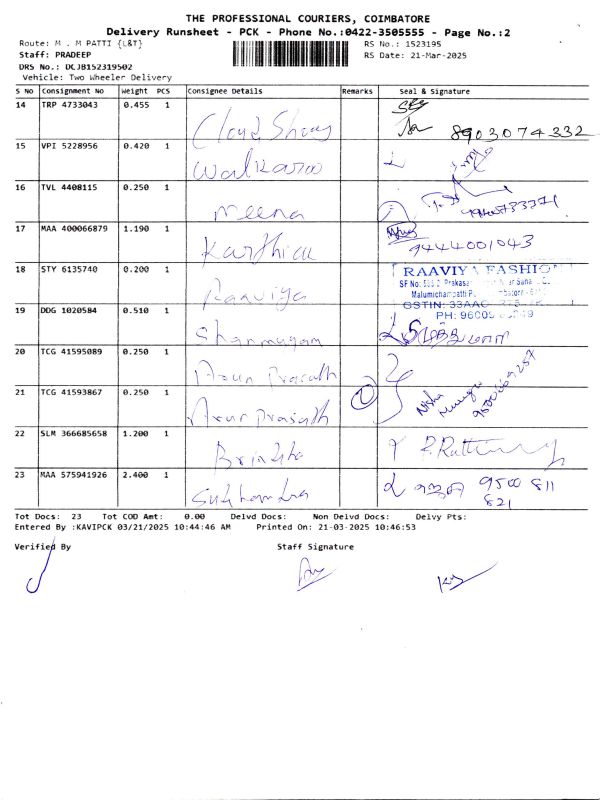 THE PROFESSIONAL COURIERS, COIMBATORE
Delivery Runsheet - PCK - Phone No.:0422-3505555 - Page No.:2
Route: M . M PATTI {L&T} RS No.: 1523195
Staff: PRADEEP RS Date: 21-Mar-2025
DRS No.: DCJB152319502
Vehicle: Two Wheeler Delivery
S NO Consignment No Weight PCS Consignee Details Remarks Seal & Signature
14 TRP 4733043 0.455 1
Cloud 8903074332
15 VPI 5228956 0.420 1
Walkaroo
16 TVL 4408115 0.250 1
Meena
17 MAA 400066879 1.190 1
Karthick 9444001043
18 STY 6135740 0.200 1
Raaviya
RAAVIYA FASHIO
SF No: Prakasa
Malumichampatti P
GSTIN: 33AAC
PH: 96005
19 DDG 1020584 0.510 1
Shanmugam
20 TCG 41595089 0.250 1
Arun Prasath
21 TCG 41593867 0.250 1
Arun Prasath
Nisha
22 SLM 366685658 1.200 1
23 MAA 575941926 2.400 1
9500 811
821
Tot Docs: 23 Tot COD Amt: 0.00 Delvd Docs: Non Delvd Docs: Delvy Pts:
Entered By :KAVIPCK 03/21/2025 10:44:46 AM Printed On: 21-03-2025 10:46:53
Verified By Staff Signature